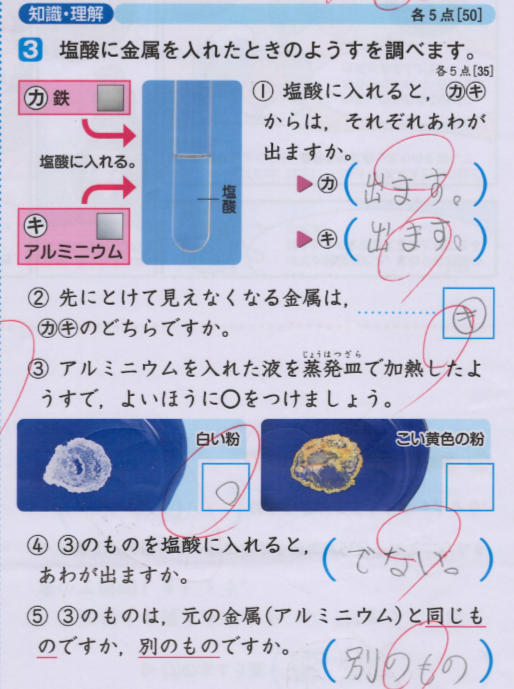 知識・理解 各5点[50]
3 塩酸に金属を入れたときのようすを調べます。
各5点[35]
㋕ 鉄
塩酸に入れる。
㋖
アルミニウム
塩酸
① 塩酸に入れると，㋕㋖
からは，それぞれあわが
出ますか。
▶㋕(出ます。)
▶㋖(出ます。)
② 先にとけて見えなくなる金属は，
㋕㋖のどちらですか。
㋖
③ アルミニウムを入れた液を蒸発皿で加熱したよ
じょうはつざら
うすで，よいほうに○をつけましょう。
白い粉
○
こい黄色の粉
④ ③のものを塩酸に入れると，
あわが出ますか。
(でない。)
⑤ ③のものは，元の金属(アルミニウム)と同じも
のですか，別のものですか。
(別のもの)